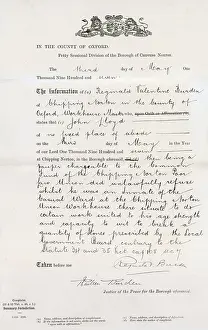 IN THE COUNTY OF OXFORD.
Petty Sessional Division of the Borough of Chipping Norton.
The Third day of May
One Thousand Nine Hundred and
The Information of Reginald Valentine Burden
of Chipping Norton in the County of
Oxford, Workhouse Master who
John Floyd
of no fixed place of abode
on the day of May in the Year
of our Lord One Thousand Nine Hundred and
at Chipping Norton, in the Borough aforesaid then being a
pauper chargeable to the Common
Fund of the Chipping Norton Poor
Law Union did unlawfully refuse
whilst he was an inmate of the
Casual Ward at the Chipping Norton
Union Workhouse there situate to do
certain work suited to his age strength
and capacity to wit to break a
quantity of stones prescribed by the Local
Government Board contrary to the
Statute 34 and 35 Vict cap 108
Taken before me
Justice of the Peace for the Borough aforesaid.
Complaint.
Summary Jurisdiction